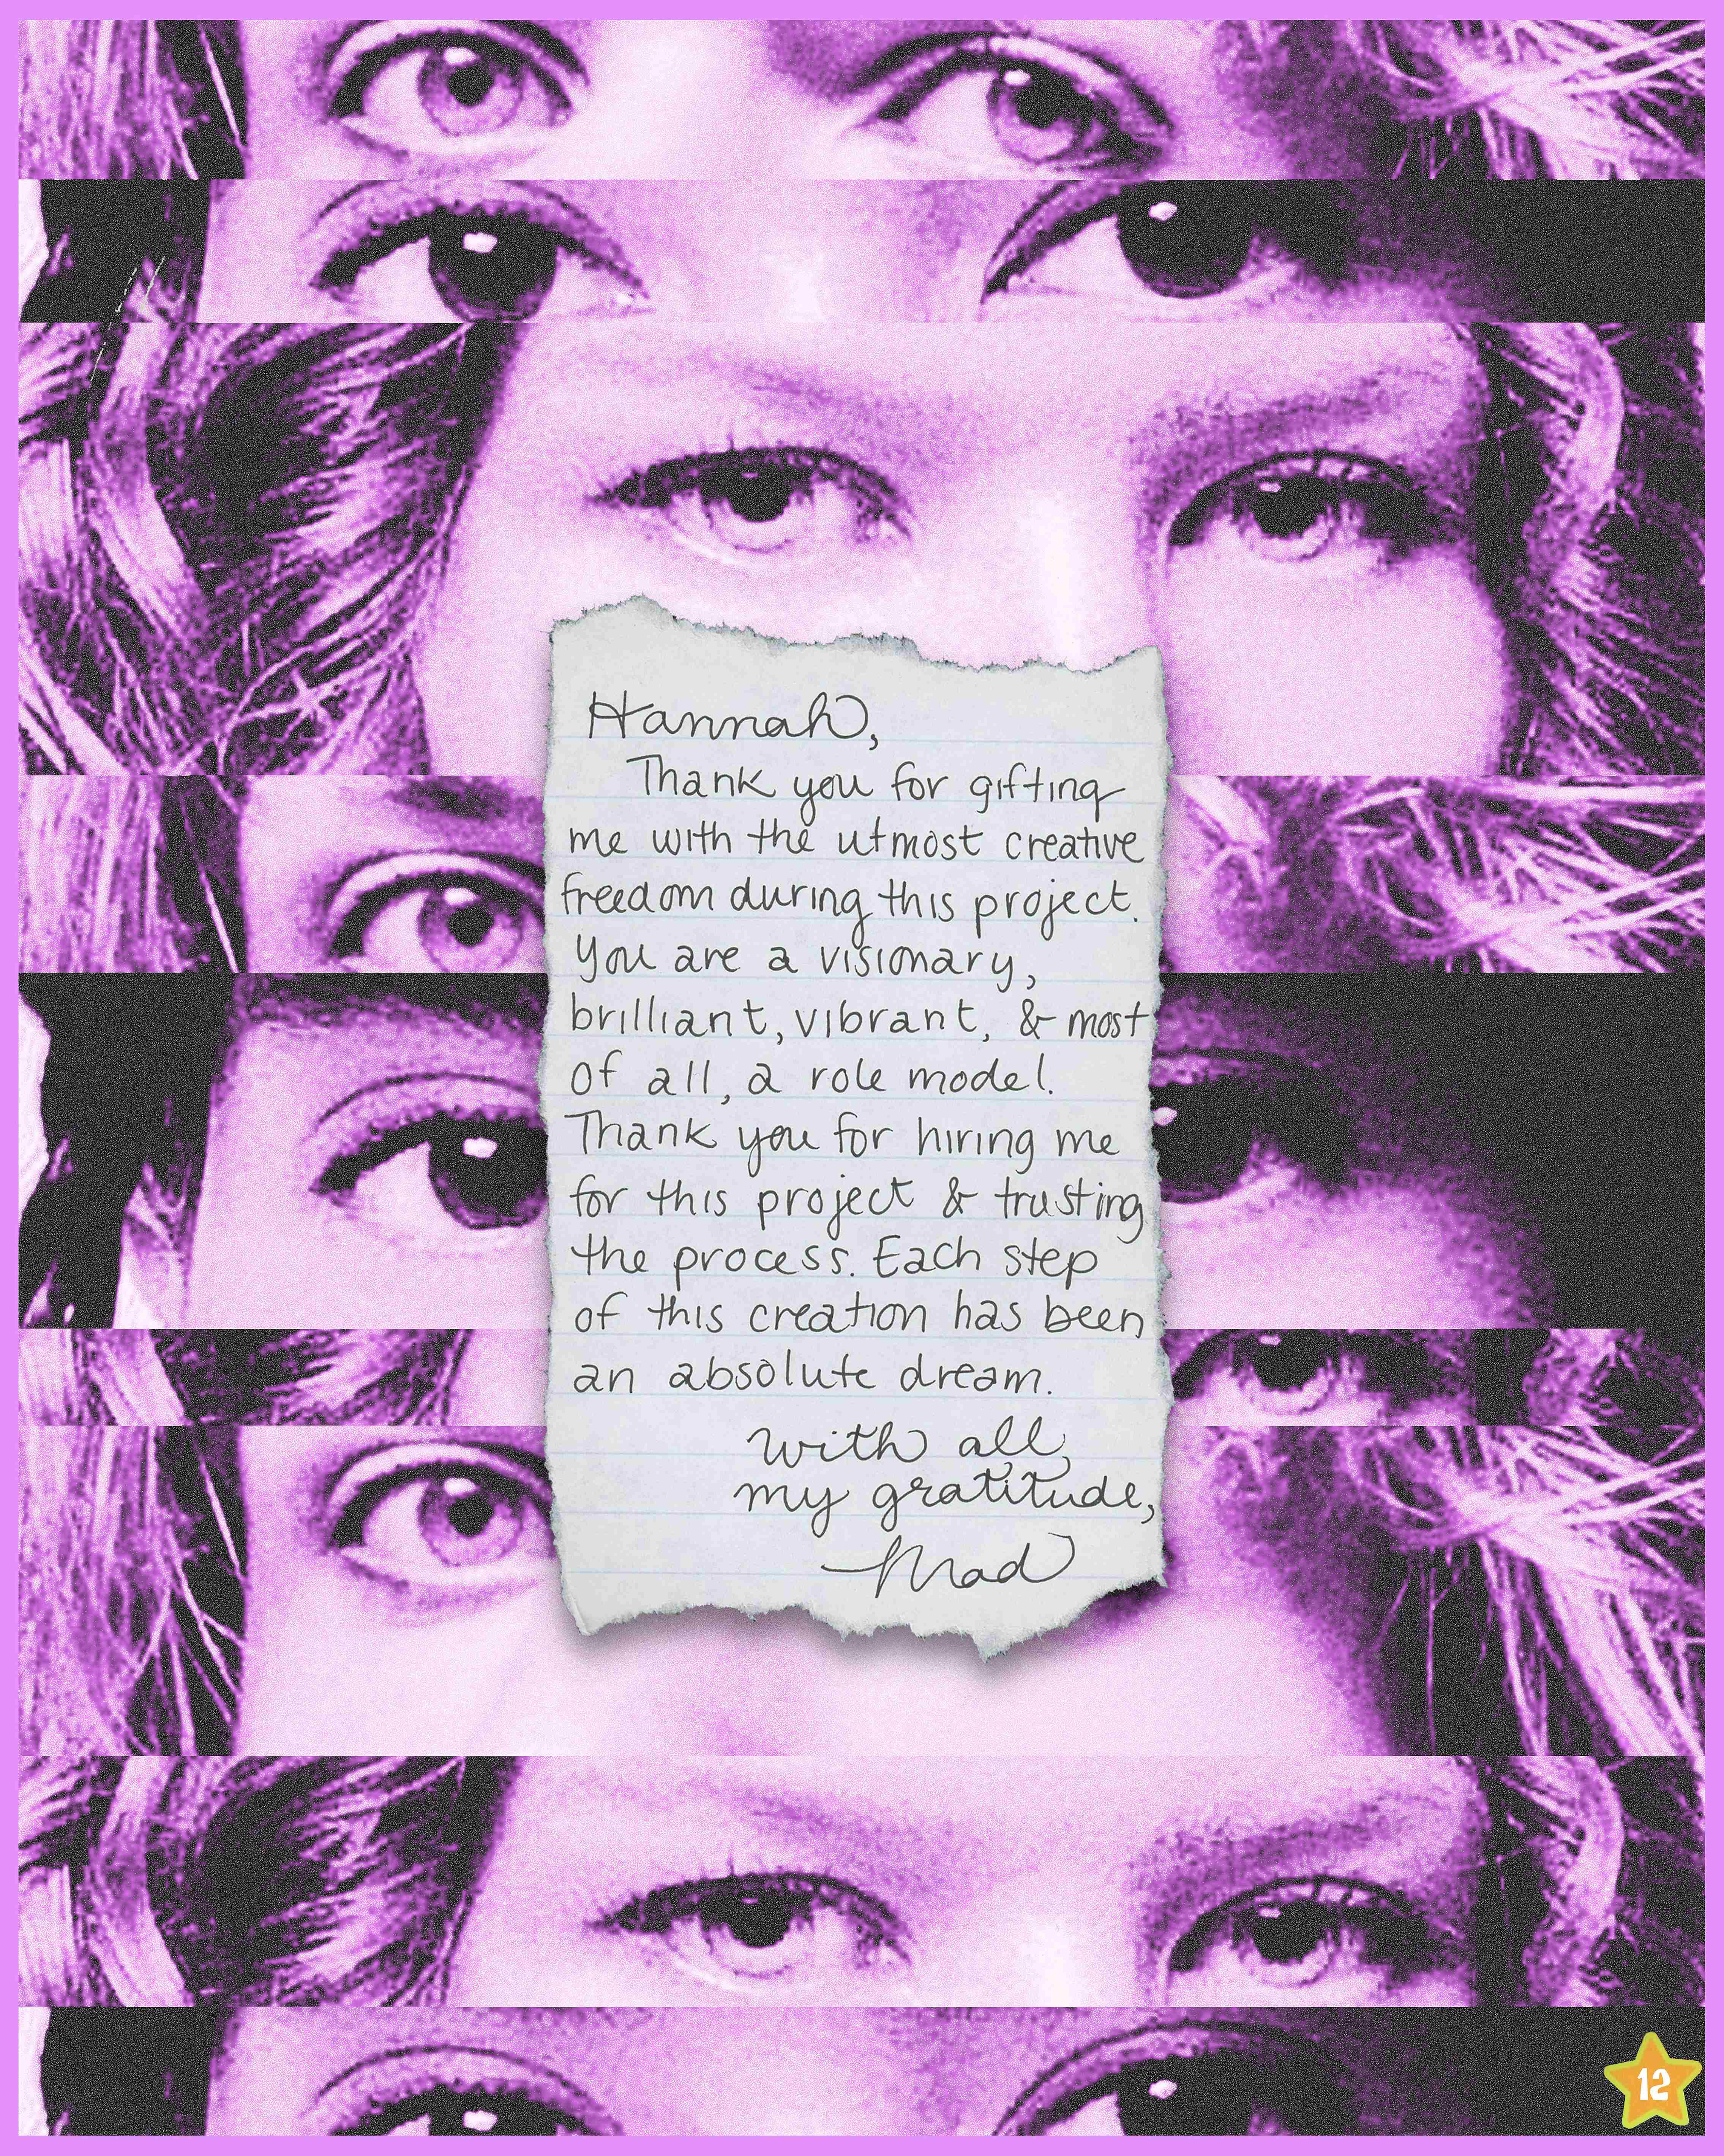 Hannah,
Thank you for gifting
me with the utmost creative
freedom during this project.
You are a visionary,
brilliant, vibrant, & most
of all, a role model.
Thank you for hiring me
for this project & trusting
the process. Each step
of this creation has been
an absolute dream.
with all
my gratitude,
Mad
12